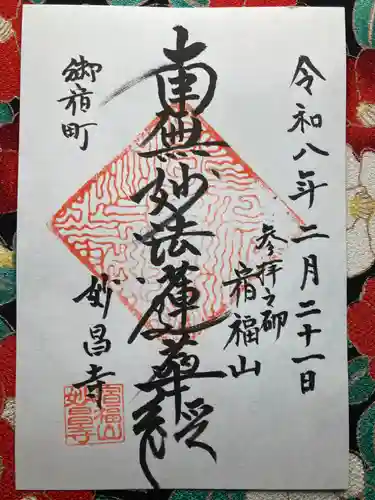 令和八年二月二十一日
参拝之砌
宿福山
南無妙法蓮華経
授
御宿町
妙昌寺
宿福山
妙昌寺